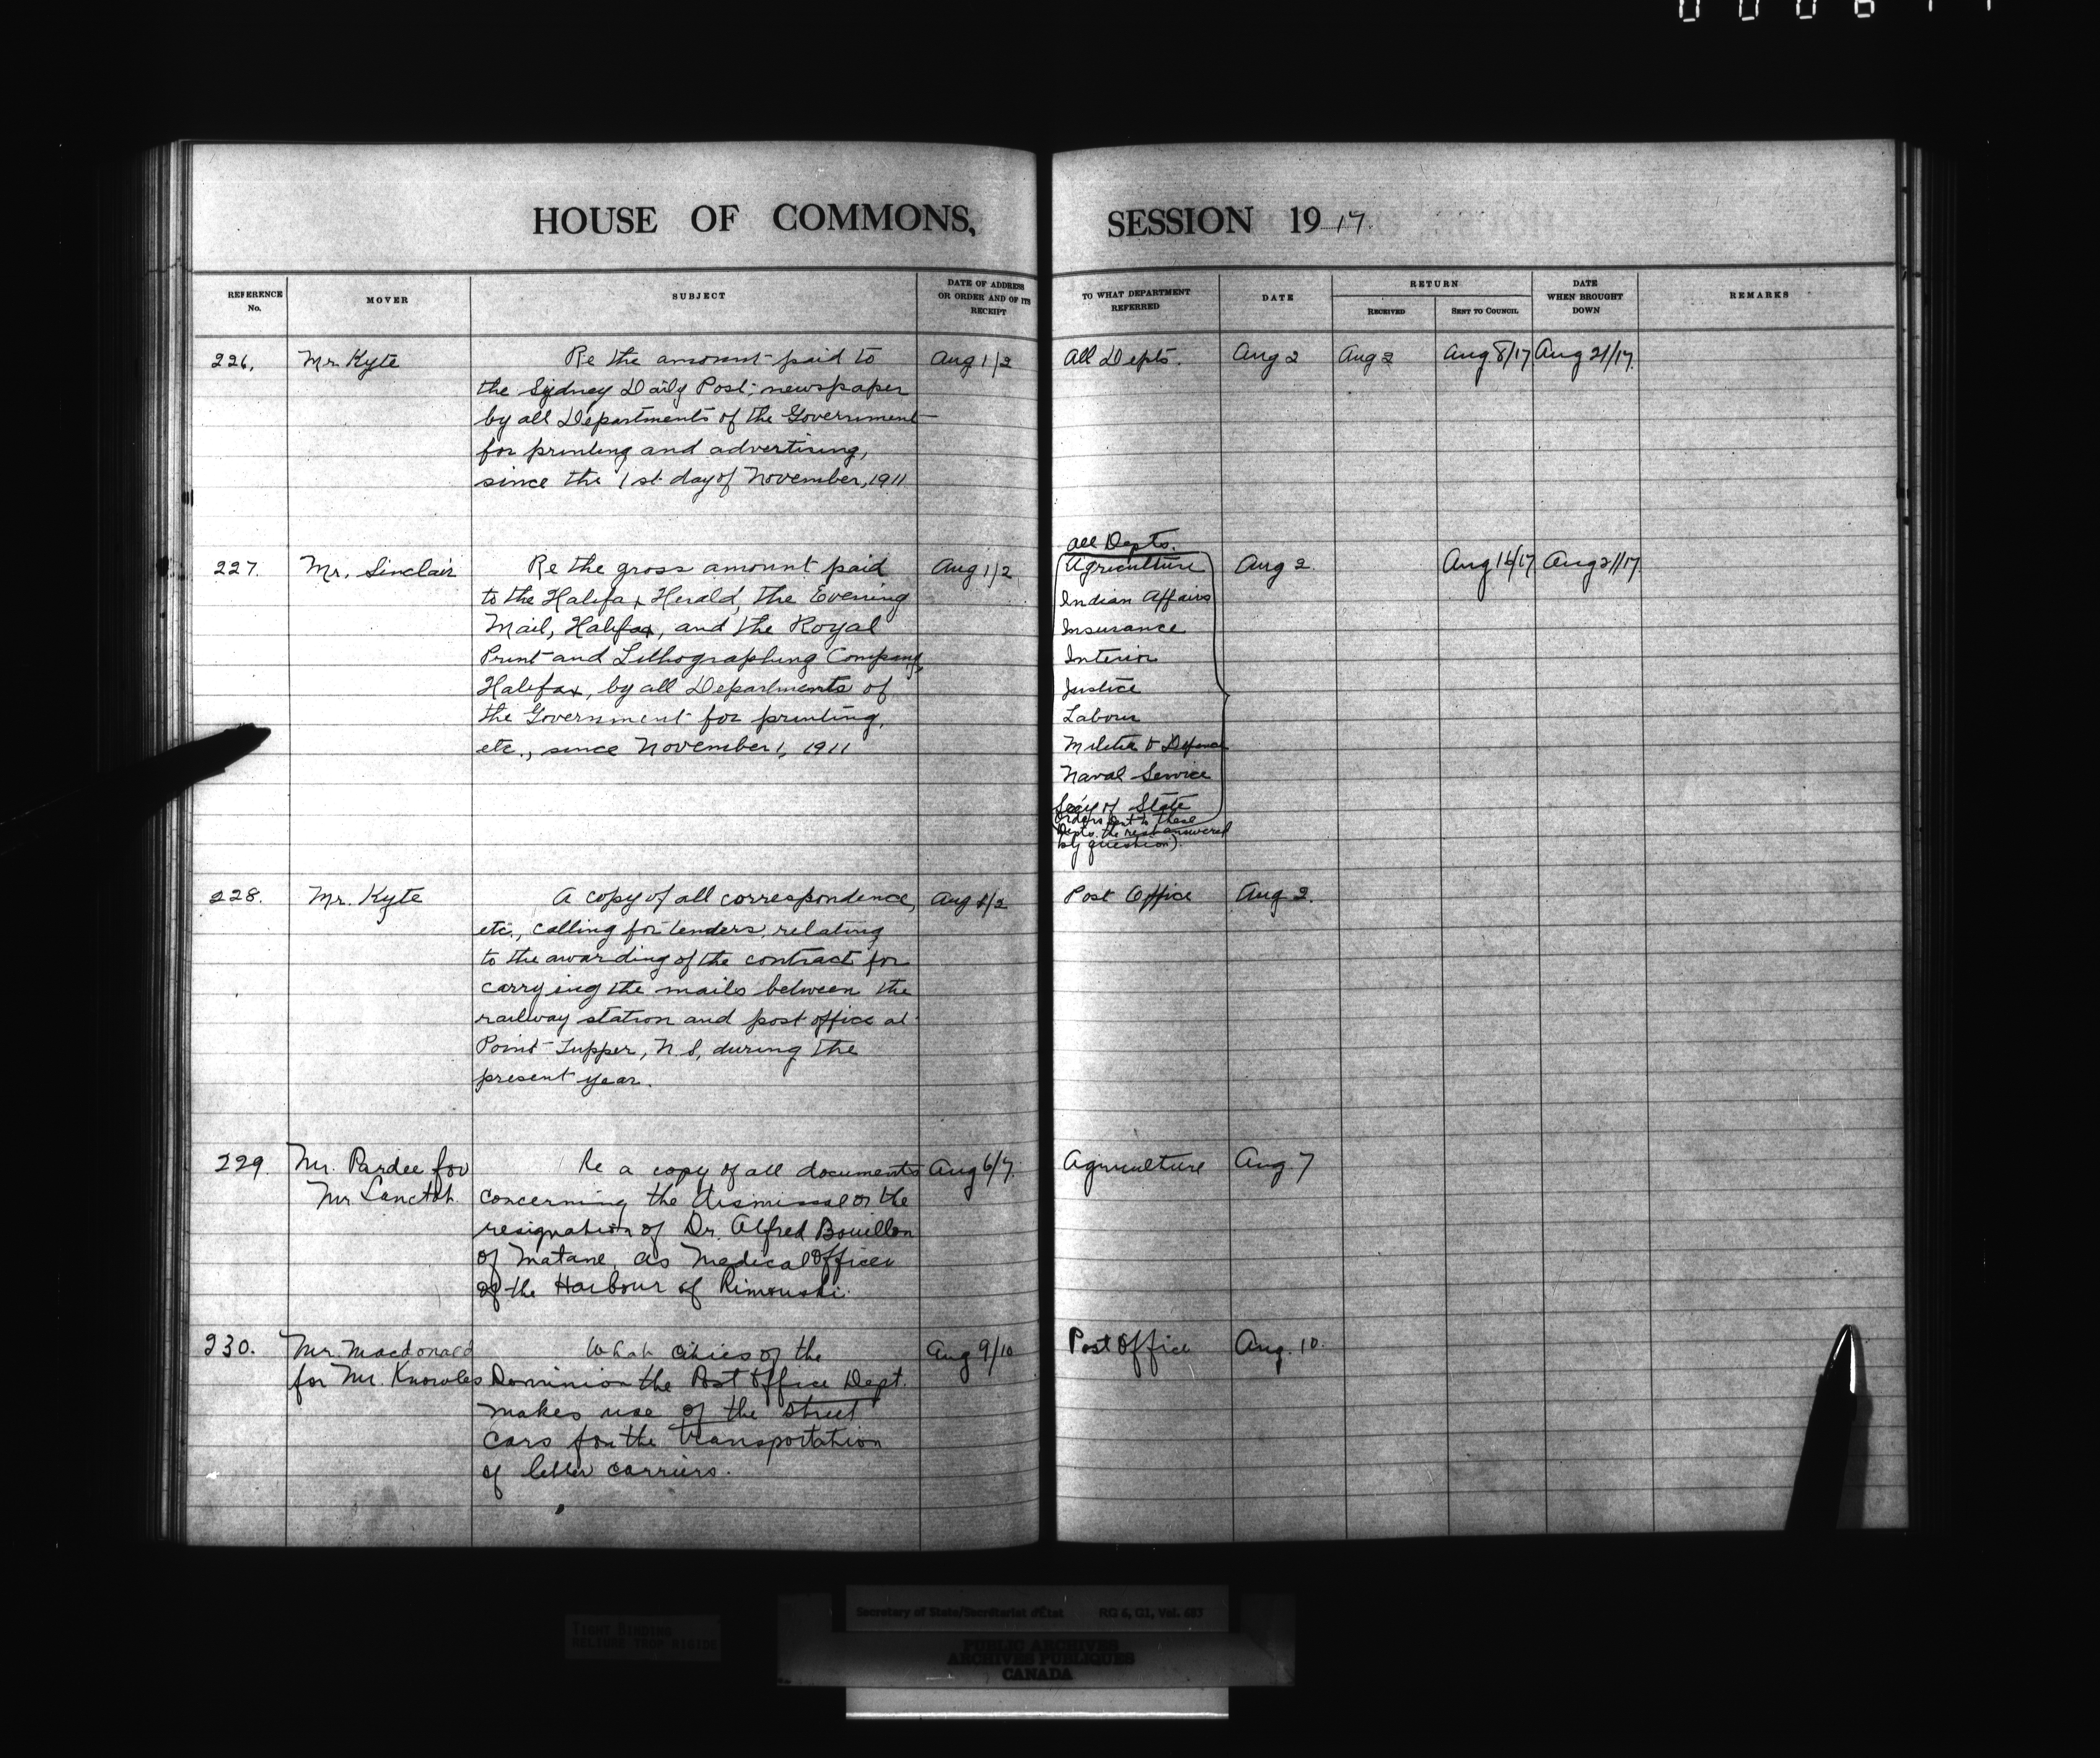 HOUSE OF COMMONS, SESSION 1917.
REFERENCE No.
MOVER
SUBJECT
DATE OF ADDRESS OR ORDER AND OF ITS RECEIPT
TO WHAT DEPARTMENT REFERRED
DATE
RETURN
RECEIVED
SENT TO COUNCIL
DATE WHEN BROUGHT DOWN
REMARKS
226. Mr Kyte Re the amount paid to Aug 1/2 All Depts. Aug 2 Aug 2 Aug 8/17 Aug 21/17.
the Sydney Daily Post, newspaper
by all Departments of the Government
for printing and advertising,
since the 1st day of November, 1911
All Depts.
227. Mr. Sinclair Re the gross amount paid Aug 1/2 Agriculture Aug 2. Aug 16/17 Aug 21/17.
to the Halifax Herald, the Evening Indian Affairs
Mail, Halifax, and the Royal Insurance
Print and Lithographing Company, Interior
Halifax, by all Departments of Justice
the Government for printing, Labour
etc., since November 1, 1911 Militia & Defence
Naval Service
Secy of State
Orders sent to these
Depts. the rest answered
by question).
228. Mr. Kyte A copy of all correspondence, Aug 1/2 Post Office Aug 2.
etc., calling for tenders, relating
to the awarding of the contract for
carrying the mails between the
railway station and post office at
Point Tupper, N.S, during the
present year.
229. Mr. Pardee for Re a copy of all documents Aug 6/7. Agriculture Aug 7
Mr Lanctot. concerning the dismissal or the
resignation of Dr. Alfred Bouillon
of Matane, as Medical Officer
of the Harbour of Rimouski.
230. Mr. Macdonald What cities of the Aug 9/10 Post Office Aug. 10.
for Mr. Knowles Dominion the Post Office Dept.
makes use of the street
cars for the transportation
of letter carriers.
Secretary of State/Secrétariat d'État RG 6, G1, Vol. 683
TIGHT BINDING
RELIURE TROP RIGIDE
PUBLIC ARCHIVES
ARCHIVES PUBLIQUES
CANADA